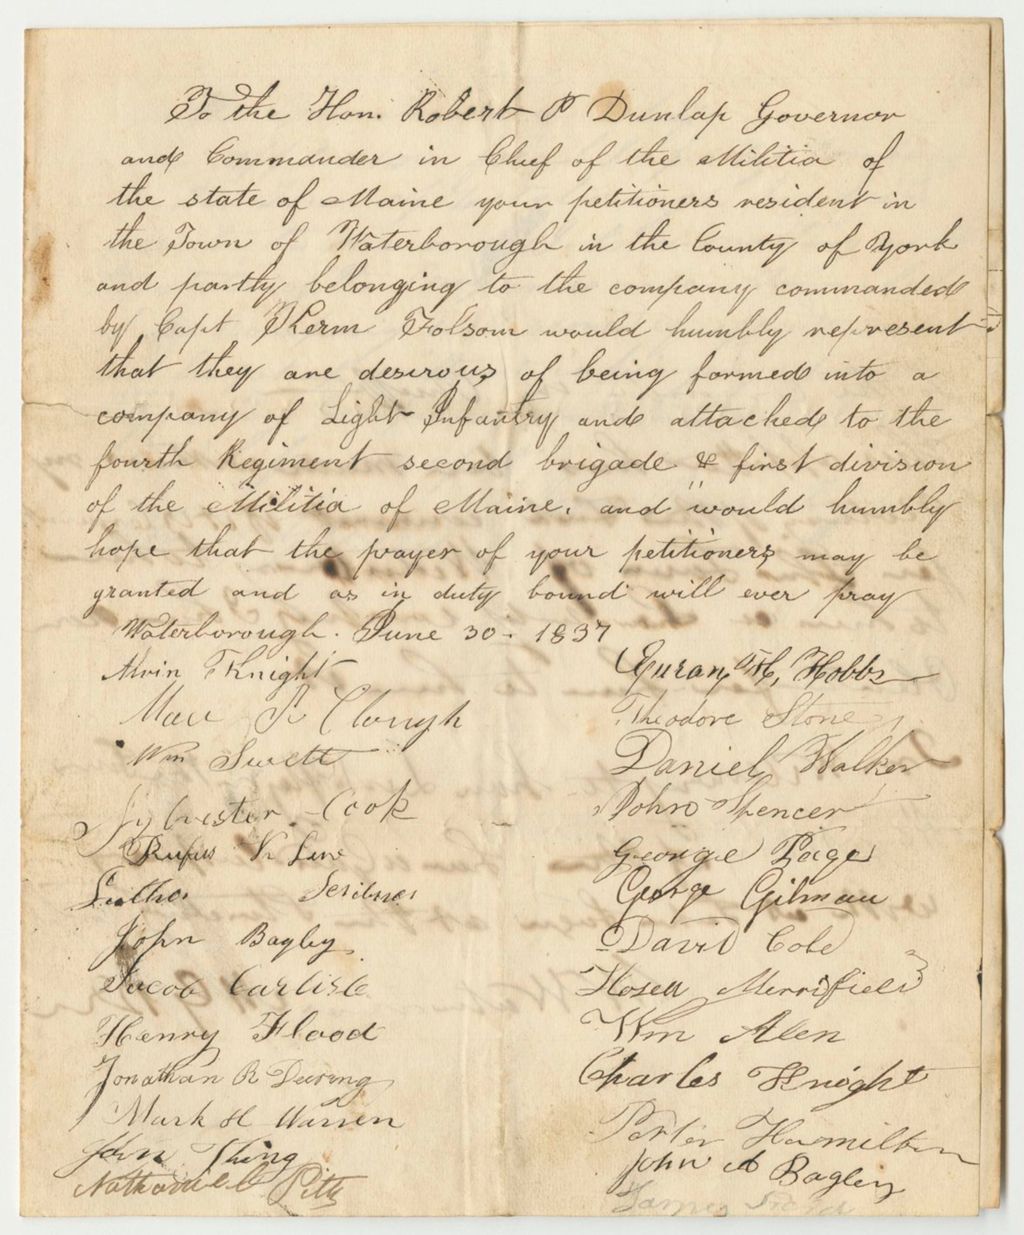 To the Hon. Robert P Dunlap Governor
and Commander in Chief of the Militia of
the state of Maine your petitioners resident in
the Town of Waterborough in the County of York
and partly belonging to the company commanded
by Capt Folsom would humbly represent
that they are desirous of being formed into a
company of Light Infantry and attached to the
fourth Regiment second brigade & first division
of the Militia of Maine. and would humbly
hope that the prayer of your petitioners may be
granted and as in duty bound will ever pray
Waterborough. June 30. 1837
Alvin Knight
Clough
Wm Swett
Sylvester Cook
Rufus K
Luther Scribner
John Bagley
Jacob Carlisle
Henry Flood
Jonathan R Deering
Mark H Warren
John King
Nathaniel Pitts
H, Hobbs
Theodore Stone
Daniel Walker
John Spencer
George Page
George Gilman
David Cobb
Hosea Merrifield
Wm Alen
Charles Knight
Porter Hamilton
John A Bagley
James